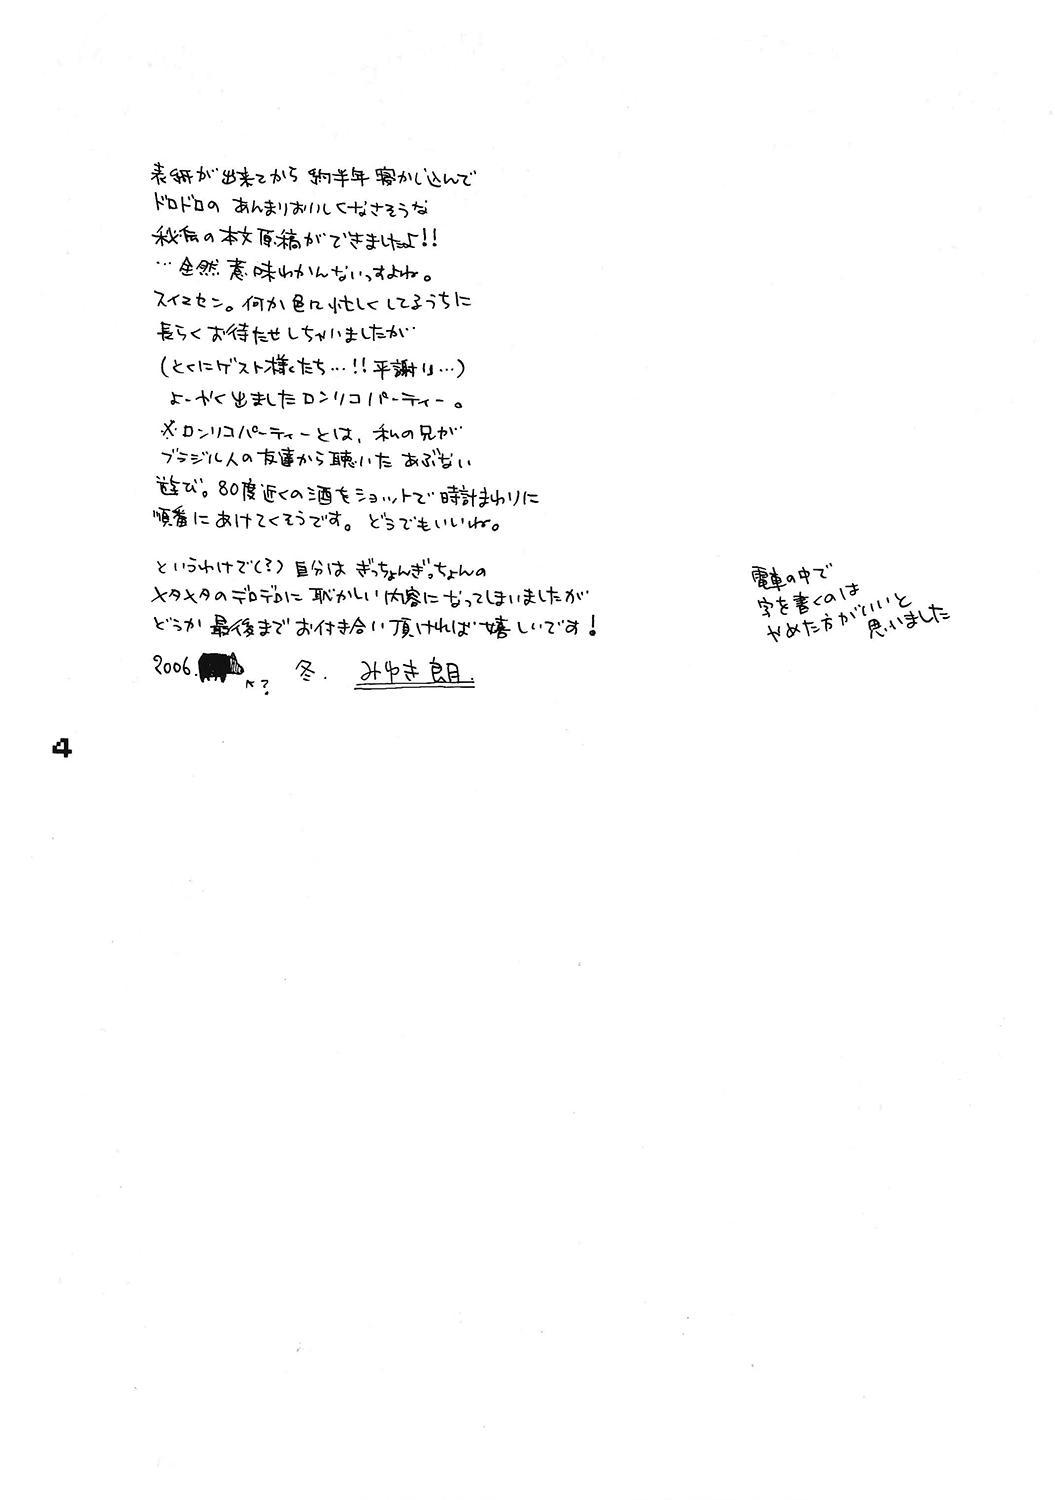 表紙が出来てから約半年寝かし込んで
ドロドロの あんまりおいしくなさそうな
秘伝の本文原稿ができましたよ!!
…全然意味わかんないっすよね。
スイマセン。何か色々忙しくしてるうちに
長らくお待たせしちゃいましたが
(とくにゲスト様たち…!!平謝り…)
よーやく出ました ロンリコパーティー。
※ロンリコパーティーとは、私の兄が
ブラジル人の友達から聴いた あぶない
遊び。80度近くの酒をショットで時計まわりに
順番にあけてくそうです。どうでもいいね。
というわけで(?) 自分は ぎっちょんぎっちょんの
メタメタのデロデロに恥かしい内容になってしまいましたが
どうか最後までお付き合い頂ければ嬉しいです!
2006. ←? 冬. みゆき朗.
電車の中で
字を書くのは
やめた方がいいと
思いました
4